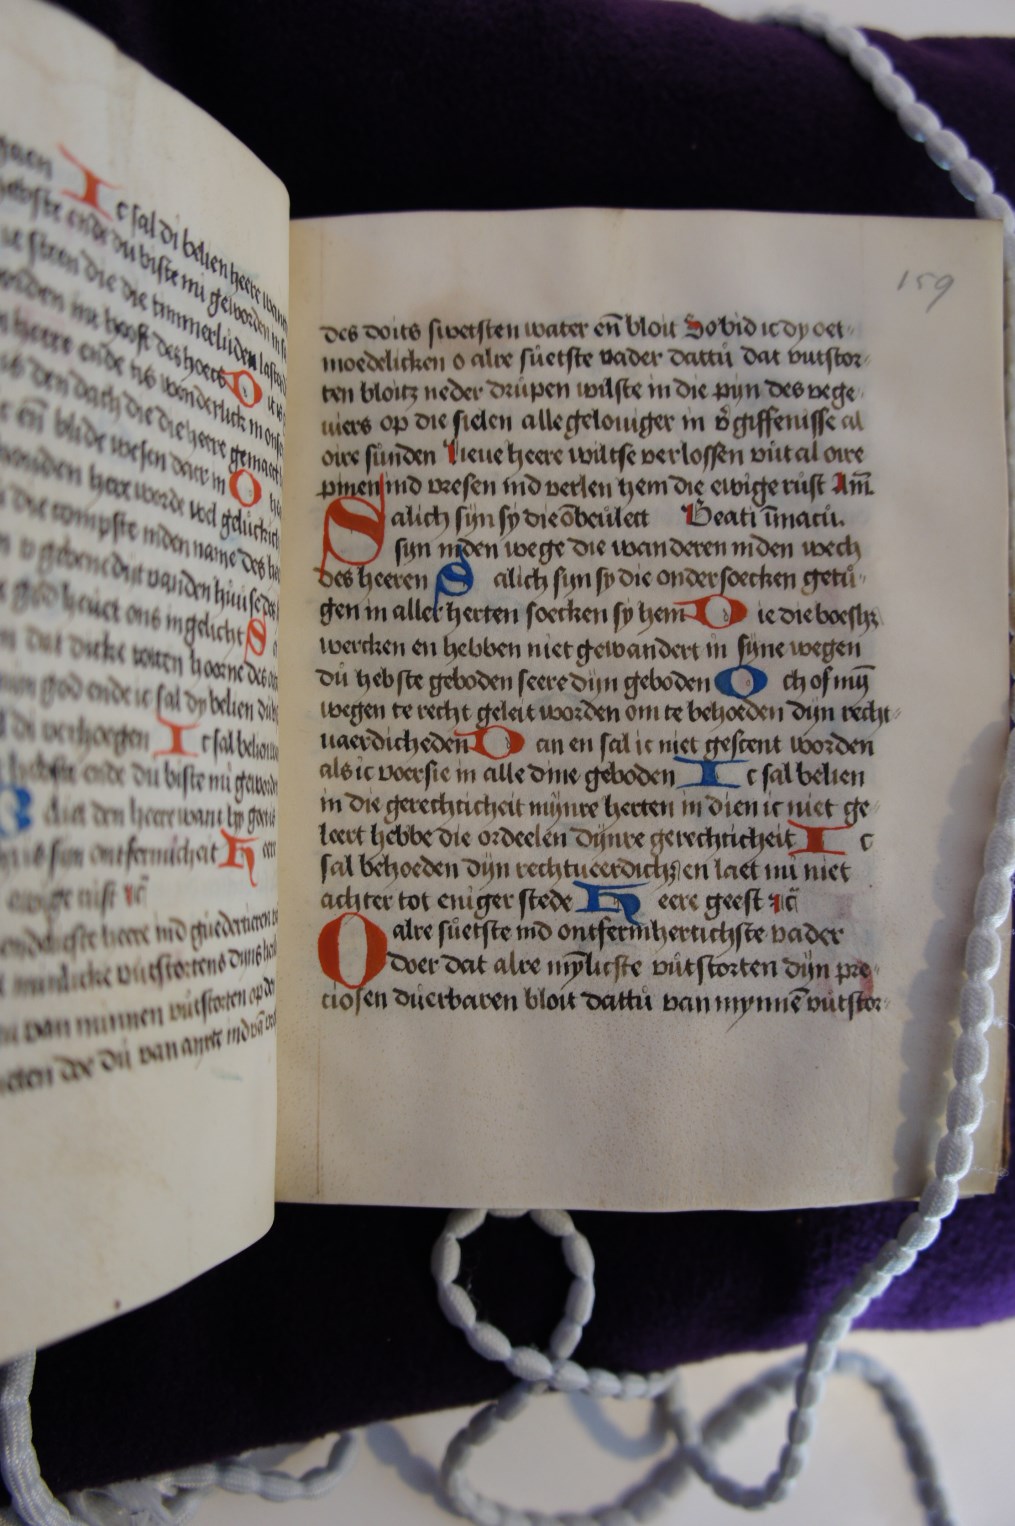 gaen Ic sal di belien heere want
hebste ende du biste mi geworden in sa
steen die die tymmerluden
int hooft des hoecs O
heere ende is wonderlick in onsen
den dach die die heere gemaect
en blide wesen daer in O
heere worde wel gheluckich
die compste inden name des he
v gebenedijt vanden huuse des
god heuct ons ingelicht S
dat dicke totten hoorne des
mijn god ende ic sal dy belien du bis
di verhoegen Ic sal belien
hebste ende du biste mi geworden
want hy goet is
is sijn ontfermicheit H eer
ewige rust ꝛc̄
heere ind guedertieren
mynlicke vutstortens dijns
van minnen vutstorten op
doe du van anxt ind van
159
des doits swetsten water en̄ bloit So bid ic dy oet-
moedelicken o alre sůetste vader dattů dat vutstor-
ten bloitz neder drůpen wilste in die pijn des vege-
viers op die sielen alle geloviger in v̄giffenisse al
oire sůnden lieue heere wiltse verlossen vůt al oire
pinen ind vresen ind verlen hem die ewige růst Am̄
Salich sijn sy die ōbeulect Beati īmacu.
sijn inden wege die wanderen inden wech
des heeren Salich sijn sy die ondersoecken getů-
gen in aller herten soecken sy hem Die die boesh
wercken en hebben niet gewandert in sijne wegen
Dů hebste geboden seere dijn geboden Och of mij
wegen te recht geleit worden om te behoeden dijn recht-
uaerdicheden Dan en sal ic niet gescent worden
als ic voersie in alle dine geboden Ic sal belien
in die gerechticheit mijnre herten in dien ic niet ge-
leert hebbe die ordeelen dijnre gerechticheit Ic
sal behoeden dijn rechtueerdich en laet mi niet
achter tot eniger stede Heere geest ꝛc̄
O alre sůetste ind ontfermhertichste vader
Doer dat alre mȳlicste vůtstorten dijn pre-
ciosen duerbaren bloit dattů van mynnē vůtstor-